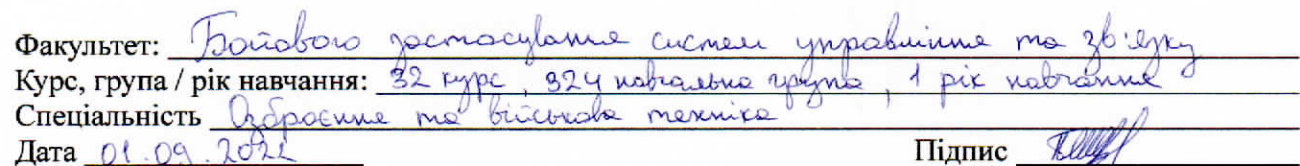 Факультет: Бойового застосування систем управління та зв'язку
Курс, група / рік навчання: 32 курс, 324 навчальна група, 1 рік навчання
Спеціальність Озброєння та військова техніка
Дата 01.09.2022 Підпис